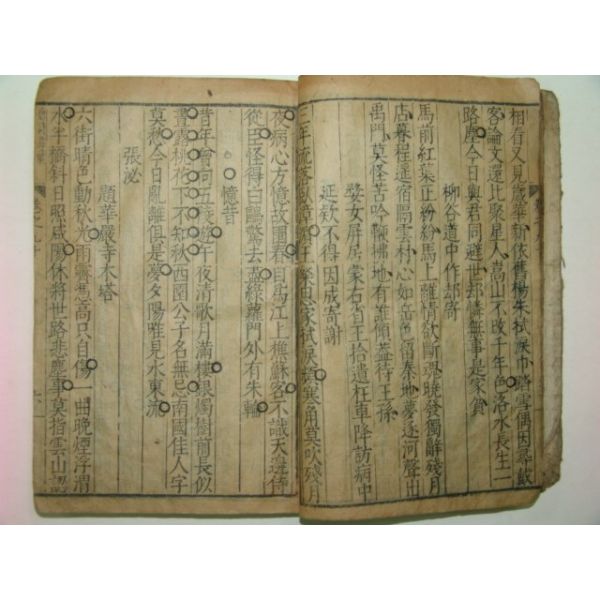 相看又見歲華新依舊楊朱拭淚巾踏雪偶因尋戴
客論文還比聚星人嵩山不改千年色洛水長生一
路塵今日與君同避世却憐無事是家貧
柳谷道中作却寄
馬前紅葉正紛紛馬上離情欲斷魂曉發獨辭殘月
店暮程遥宿隔雲村心如岳色留秦地夢逐河聲出
禹門莫怪苦吟鞭拂地有誰傾蓋待王孫
婺女屏居蒙右省王拾遺枉車降訪病中
延欵不得因成寄謝
三年流落臥漳濱王粲思家拭淚頻寒角莫吹殘月
夜病心方憶故園春自爲江上樵蘇客不識天邊侍
從臣怪得白鷗驚去盡綠蘿門外有朱輪
憶昔
昔年曾向五陵遊午夜清歌月滿樓銀燭樹前長似
晝露桃花下不知秋西園公子名無忌南國佳人字
莫愁今日亂離俱是夢夕陽唯見水東流
張泌
題華嚴寺木塔
六街晴色動秋光雨霽憑高只自傷一曲晚煙浮渭
水半橋斜日照咸陽休將世路悲塵事莫指雲山認